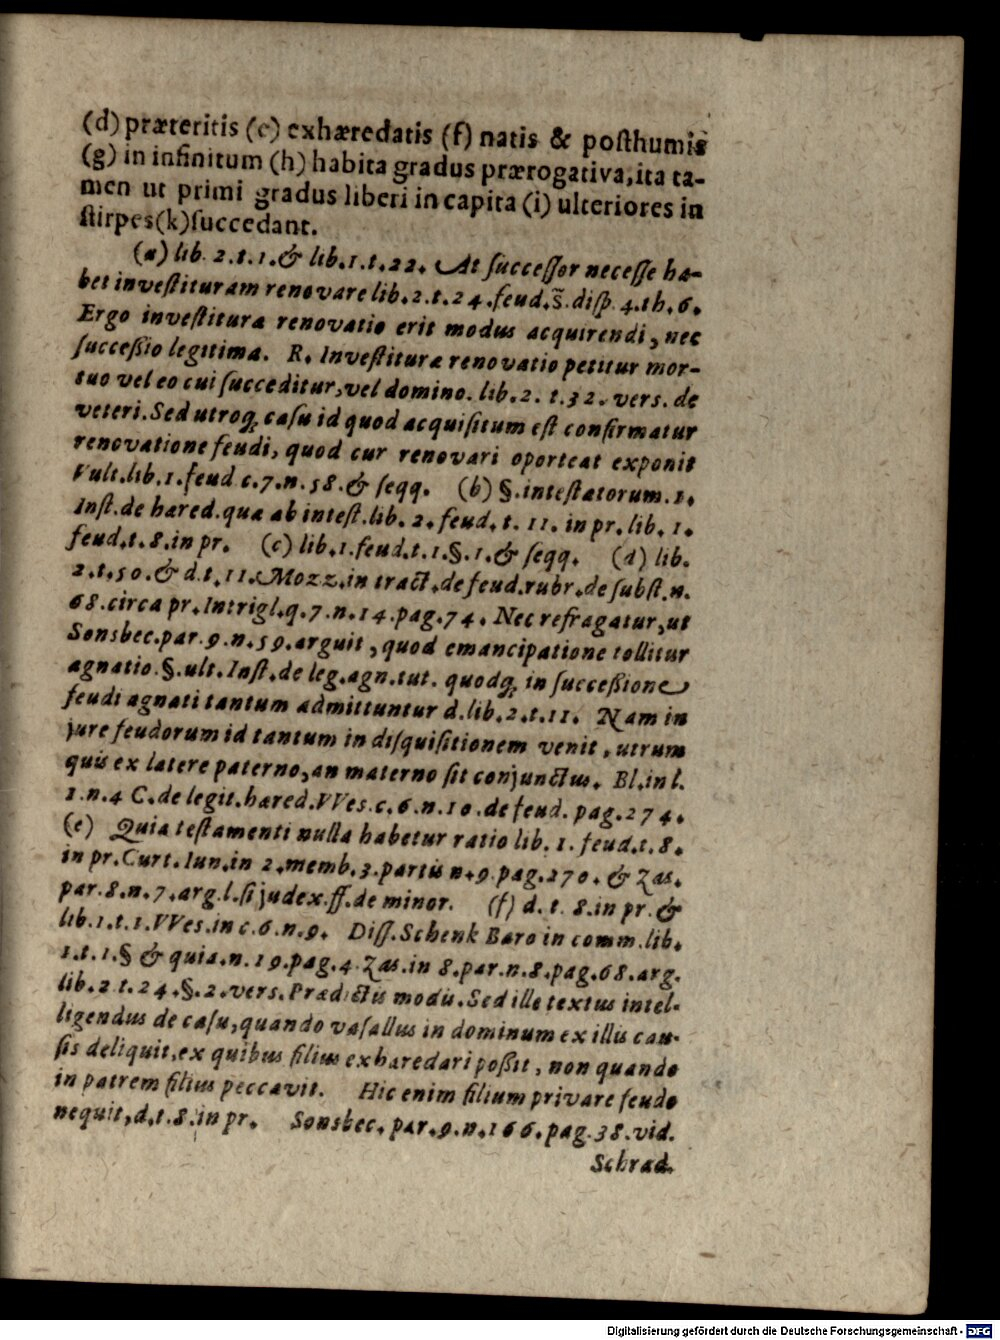 (d) præteritis (e) exhæredatis (f) natis & poſthumis
(g) in infinitum (h) habita gradus prærogativa, ita ta-
men ut primi gradus liberi in capita (i) ulteriores in
ſtirpes (k) ſuccedant.
(a) lib. 2. t. 1. & lib. 1. t. 22. At ſucceſſor neceſſe ha-
bet inveſtituram renovare lib. 2. t. 24. feud. s̃. diſp. 4. th. 6.
Ergo inveſtitura renovatio erit modus acquirendi, nec
ſucceßio legitima. R. Inveſtitura renovatio petitur mor-
tuo vel eo cui ſucceditur, vel domino. lib. 2. t. 32. verſ. de
veteri. Sed utroq; caſu id quod acquiſitum eſt confirmatur
renovatione feudi, quod cur renovari oporteat exponit
Vult. lib. 1. feud c. 7. n. 58. & ſeqq. (b) §. inteſtatorum. 1.
Inſt. de hared. qua ab inteſt. lib. 2. feud. t. 11. in pr. lib. 1.
feud. t. 8. in pr. (c) lib. 1. feud. t. 1. §. 1. & ſeqq. (d) lib.
2. t. 50. & d. t. 11. Mozz. in tract. de feud. rubr. de ſubſt. n.
68. circa pr. Intrigl. q. 7. n. 14. pag. 74. Nec refragatur, ut
Sonsbec. par. 9. n. 59. arguit, quod emancipatione tollitur
agnatio. §. ult. Inſt. de leg. agn. tut. quodq; in ſucceßione
feudi agnati tantum admittuntur d. lib. 2. t. 11. Nam in
jure feudorum id tantum in diſquiſitionem venit, utrum
quis ex latere paterno, an materno ſit conjunctus. Bl. in l.
1. n. 4 C. de legit. hared. VVes. c. 6. n. 10. de feud. pag. 274.
(e) Quia teſtamenti nulla habetur ratio lib. 1. feud. t. 8.
in pr. Curt. Iun. in 2. memb. 3. partis n. 9. pag. 270. & Zas.
par. 8. n. 7. arg. l. ſi judex. ff. de minor. (f) d. t. 8. in pr. &
lib. 1. t. 1. VVes. in c. 6. n. 9. Diſſ. Schenk Baro in comm. lib.
1. t. 1. § & quia. n. 19. pag. 4. Zas. in 8. par. n. 8. pag. 68. arg.
lib. 2 t. 24. §. 2. verſ. Prædictis modis. Sed ille textus intel-
ligendus de caſu, quando vaſallus in dominum ex illis cau-
ſis deliquit, ex quibus filius exharedari poßit, non quando
in patrem filius peccavit. Hic enim filium privare feudo
nequit, d. t. 8. in pr. Sonsbec. par. 9. n. 166. pag. 38. vid.
Schrad.
Digitalisierung gefördert durch die Deutsche Forschungsgemeinschaft - DFG